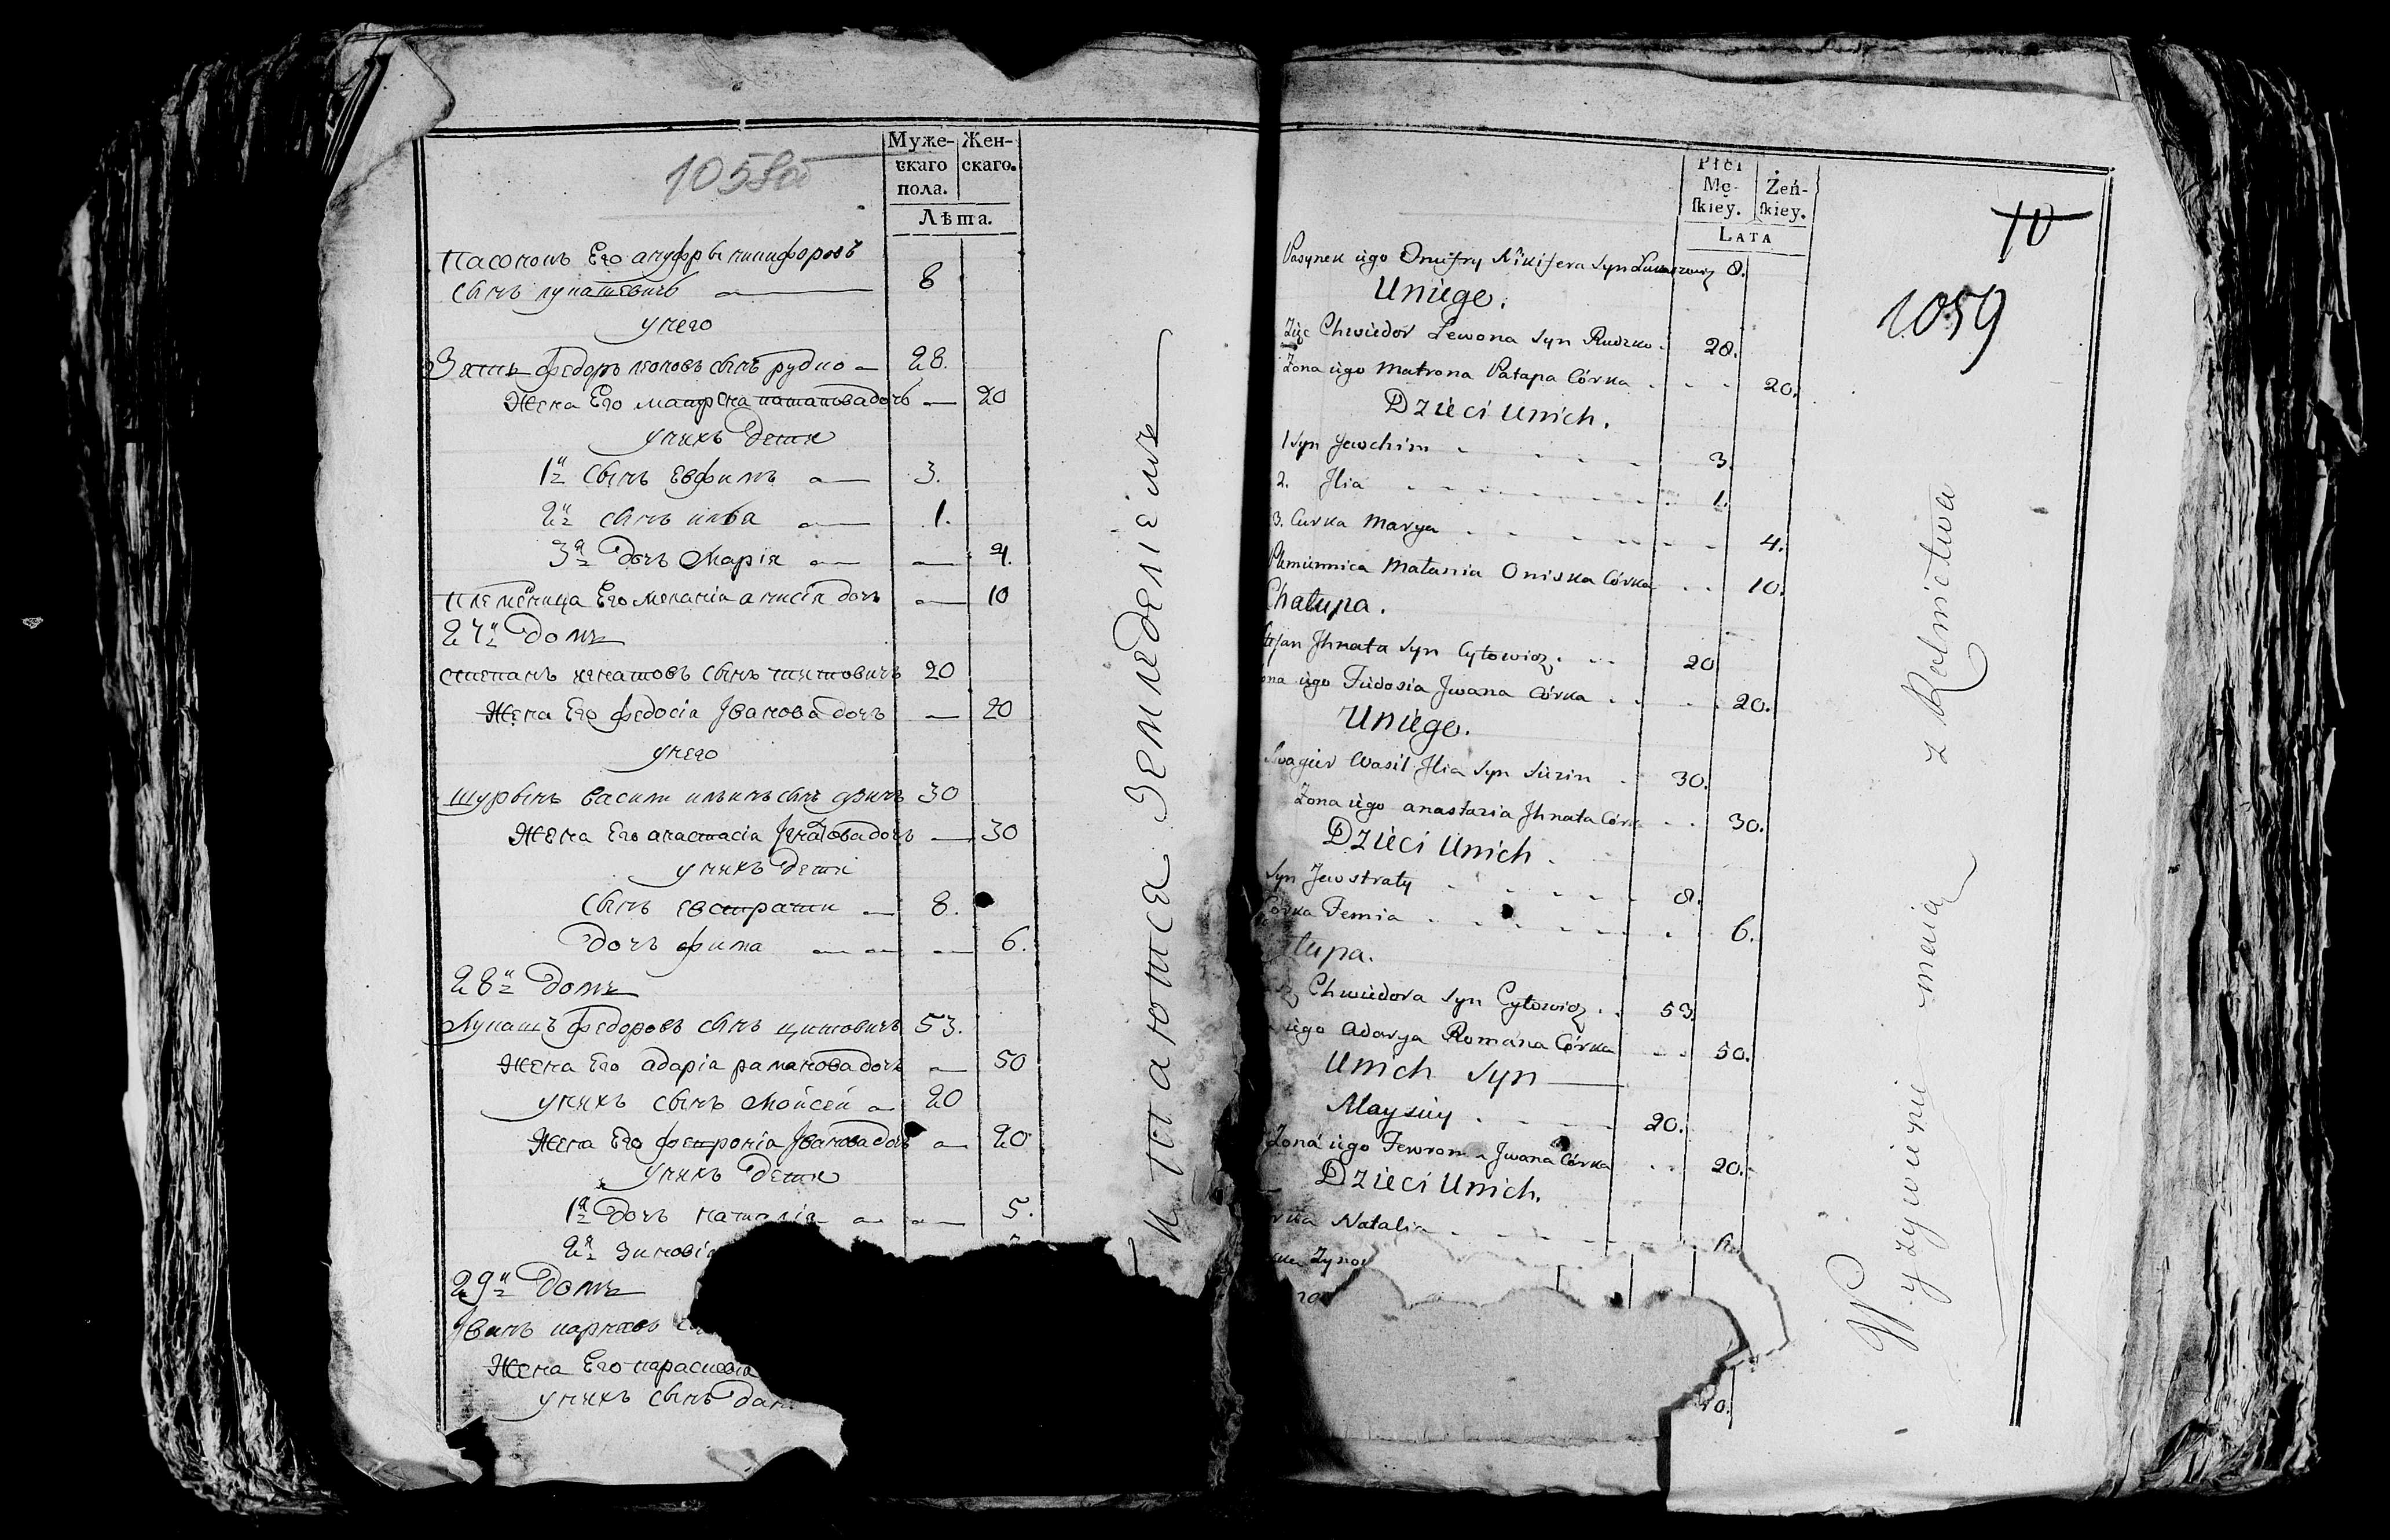 1058об
Муже- Жен-
скаго скаго.
пола.
Лѣта.
Пасономъ Его ануфры никифоровъ
сынъ лукашевичъ — 8
унего
Зять федоръ леоновъ сынъ рудко — 28.
Жена Его матрена патапова дочь — 20
унихъ дети
1й сынъ Евфимъ — 3.
2й сынъ илья — 1.
3я дочь Марія — — 4.
племеница Его меланія анисія дочь — 10
27й домъ
степанъ игнатовъ сынъ титовичъ 20
Жена Его федосія Іванова дочь — 20
унего
шурынъ васили ильинъ сынъ 30
Жена Его анастасія Ігнатова дочь — 30
унихъ дети
сынъ евстрати — 8.
дочь фима — — — 6.
28й домъ
Лукашъ федоровъ сынъ цитовичъ 53.
Жена Его адарія раманова дочь — 50
унихъ сынъ Мойсей — 20
Жена Его феηронія Іванова дочь — 20
унихъ дети
1я дочь наталія — — 5.
2я зиновія
29й домъ
Іванъ
Жена Его параскевия
унихъ сынъ дан
питаютса Земледеліемъ
Płci
Mę- Żeń-
skiey. skiey.
LATA
Pasynek iego Onufry Nikifera syn Łukaszewicz 8.
Uniego.
Zięc Chwiedor Lewona syn Rudzko. 28.
Żona iego Matrona Patapa Córka . . . 20.
Dzieci Unich.
1 Syn Jewchim . . . . 3.
2. Jlia . . . . . 1.
3. Curka Marya . . . . . 4.
Plemiennica Matania Oniska Córka . . 10.
Chałupa.
Stefan Jhnata Syn Cytowicz . . . 20
ona iego Fiedosia Jwana Córka . . . 20.
Uniego.
Swagier Wasil Jlia Syn . 30.
Żona iego anastazia Jhnata Córk . . 30.
Dzieci Unich.
Syn Jewstraty . . . . . 8.
Córka Femia . . . . . . 6.
łupa.
sz Chwiedora Syn Cytowicz . . 53.
iego Adarya Romana Córka . . 50.
Unich Syn —
Maysiey . . . . 20.
Żona iego Fewronia Jwana Córka . . 20.
Dzieci Unich.
rka Natalia . . . . .
rka Zynow
10.
10
1059
Wyżywienie maią z Rolnictwa